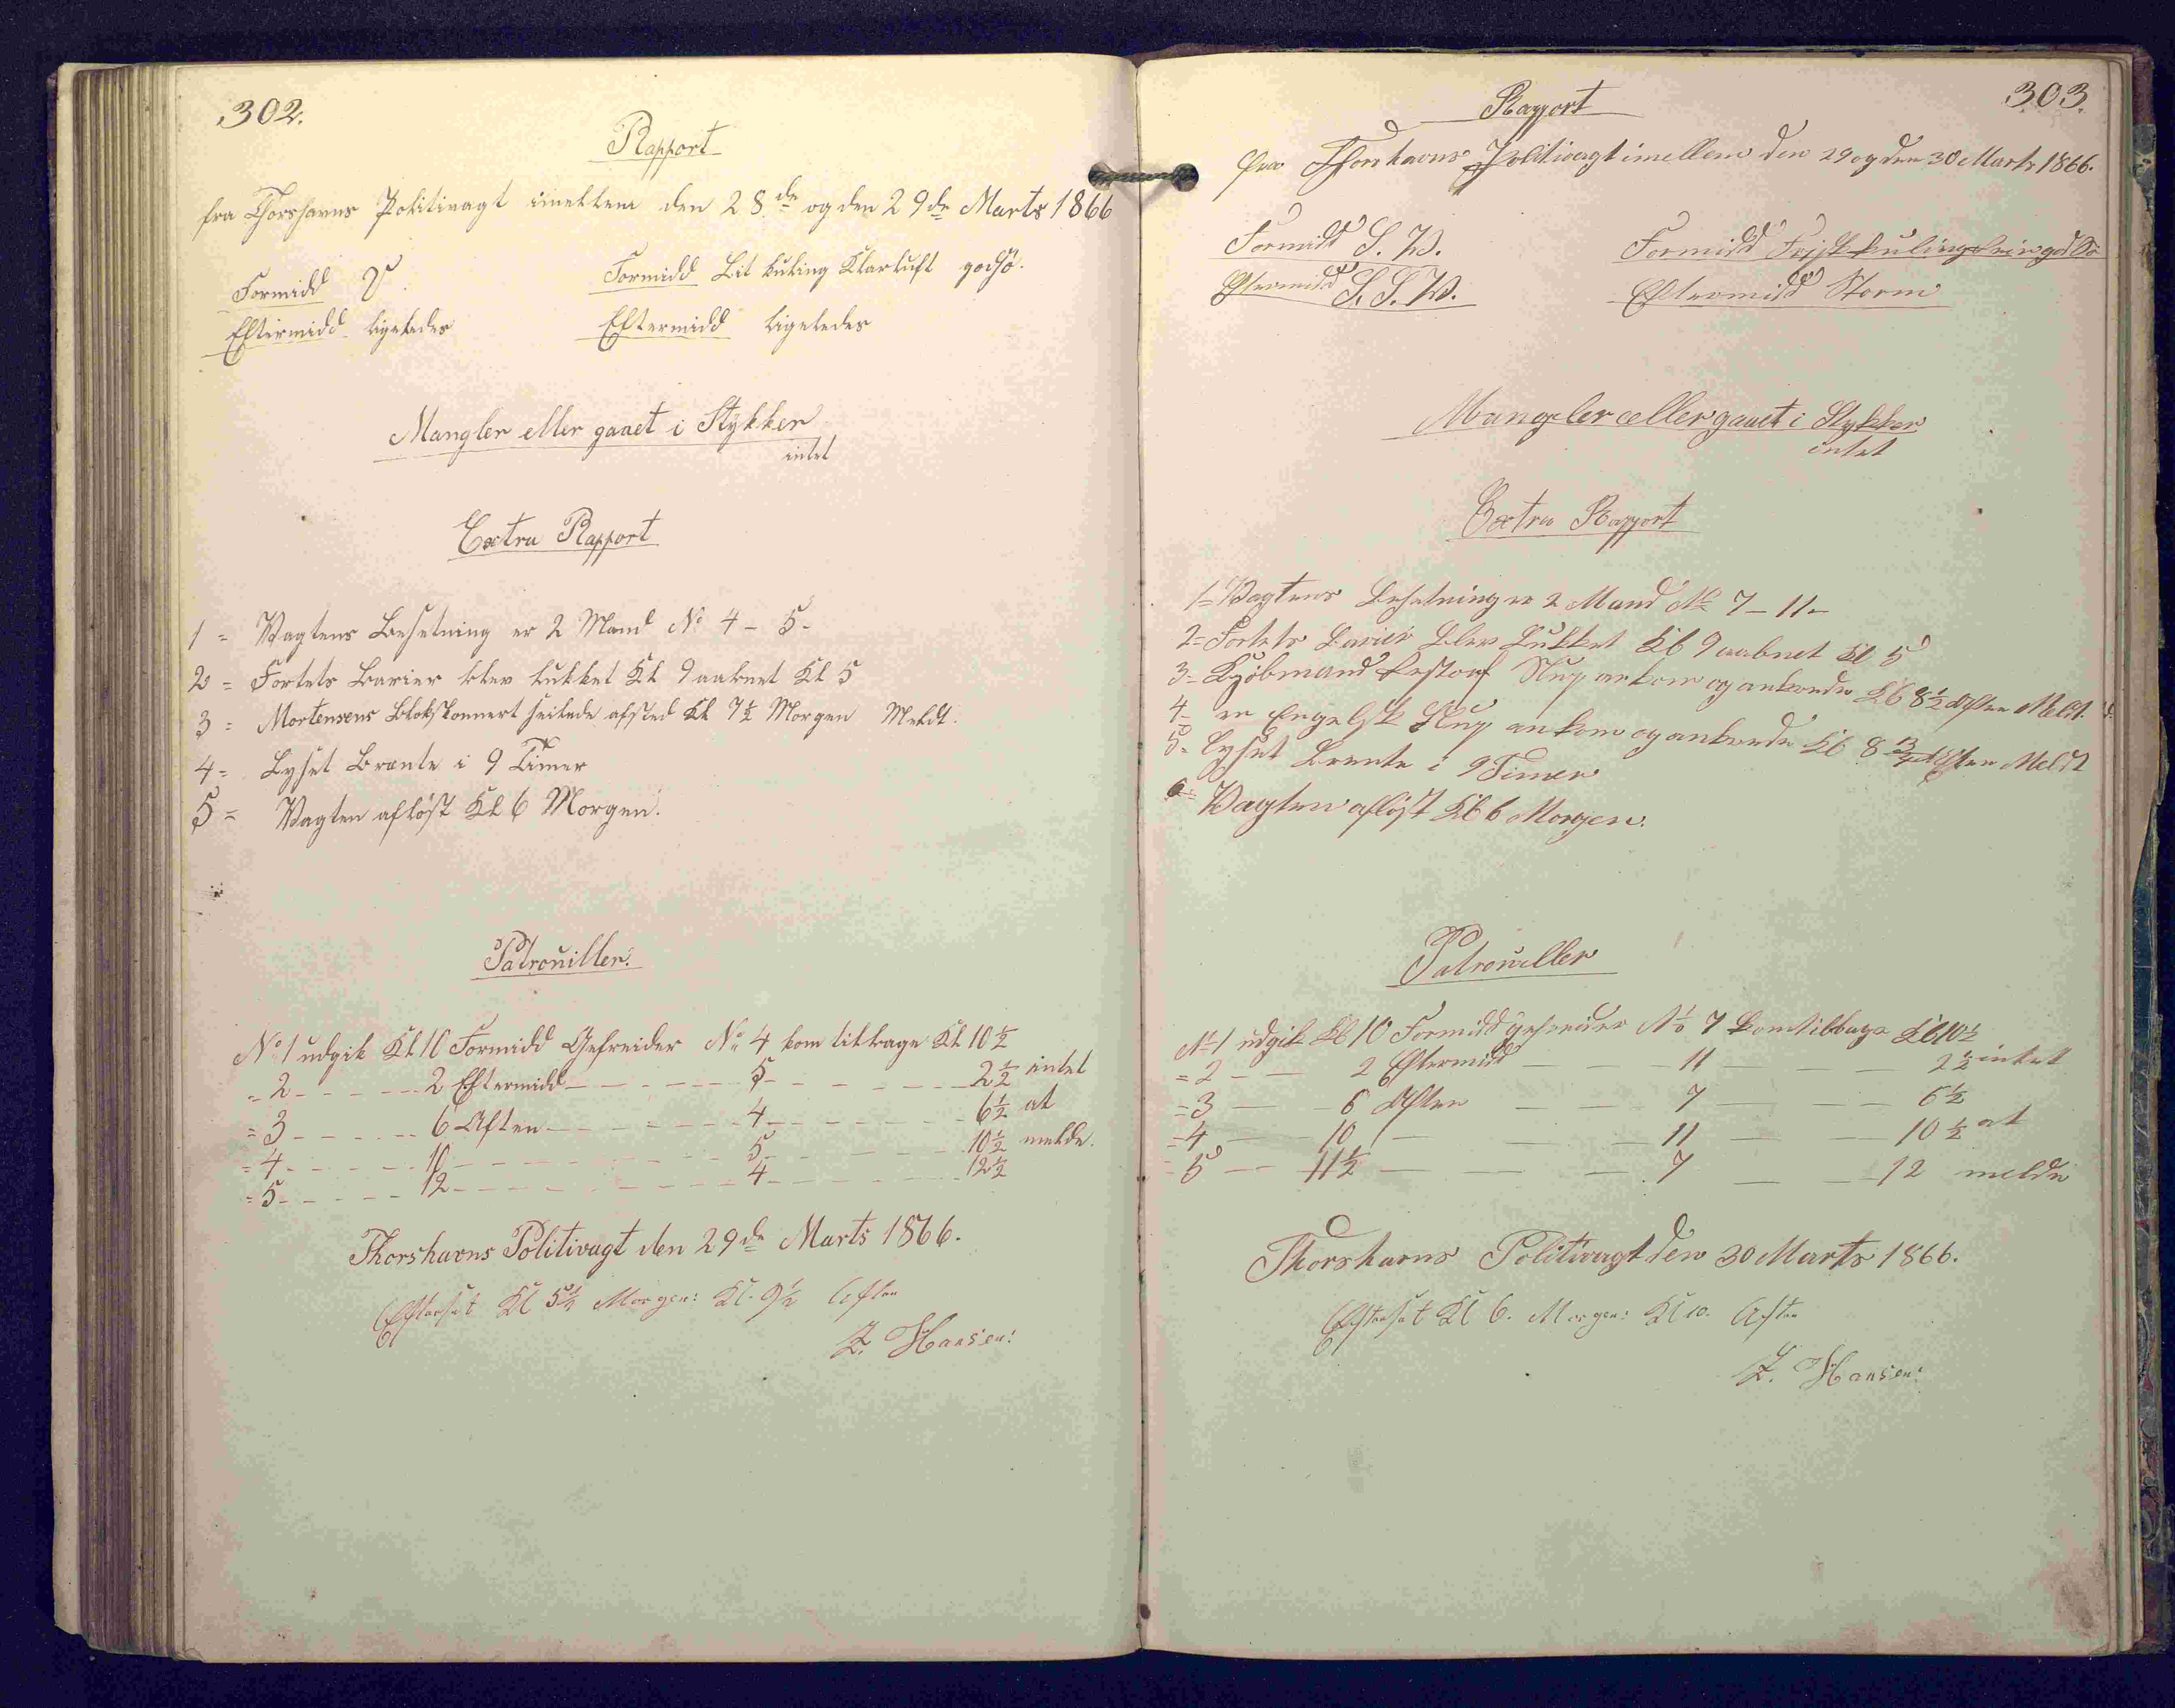 302.
Rapport
fra Thorshavns Politivagt imellem den 28de og den 29de Marts 1866
Formidd V. Formidd Lit kuling Klarluft god Sø.
Eftermidd ligeledes Eftermidd ligeledes
Mangler eller gaaet i Stykker
intet
Extra Rapport
1 = Vagtens Besetning er 2 Mand No 4 - 5 -
2 = Fortets Barier blev lukket Kl 9 aabnet Kl 5
3 = Mortensens Blokskonnert seilede afsted Kl 7½ Morgen Meldt.
4 = Lyset Brænte i 9 Timer
5 = Vagten afløst Kl 6 Morgen.
Patrouiller.
No 1 udgik Kl 10 Formidd Gefreider No 4 kom tilbage Kl 10½
= 2 - - - - 2 Eftermidd - - - - 5 - - - - 2½ intet
= 3 - - - - 6 Aften - - - - 4 - - - - 6½ at
= 4 - - - - 10 - - - - 5 - - - - 10½ melde.
= 5 - - - - 12 - - - - 4 - - - - 12½
Thorshavns Politivagt den 29de Marts 1866.
Efterset Kl 5½ Morgen: Kl. 9½ Aften
Z. Hansen:
303.
Rapport
fra Thorshavns Politivagt imellem den 29 og den 30 Marts 1866.
Formidd S. W. Formidd
Eftermidd S. S. W. Eftermidd Storm
Mangler eller gaaet i Stykker
intet
Extra Rapport
1 = Vagtens Besetning er 2 Mand No 7 - 11 -
2 = Fortets Barier blev Lukket Kl 9 aabnet Kl 5
3 = Kjøbmand Restorf Slup ankom og ankrede Kl 8½ Aften Meldt.
4 - en Engelsk Slup ankom og ankrede Kl 8¾ Aften Meldt
5 - Lyset Brente i 9 Timer
6 = Vagten afløst Kl 6 Morgen.
Patrouiller
No 1 udgik Kl 10 Formidd gefreider No 7 kom tilbage Kl 10½
= 2 — — 2 Eftermidd — — — 11 — — — 2½ intet
= 3 — — 6 Aften — — — 7 — — — 6½
= 4 — — 10 — — — 11 — — — 10½ at
= 5 — — 11½ — — — 7 — — — 12 melde
Thorshavns Politivagt den 30 Marts 1866.
Efterset Kl 6. Morgen: Kl 10. Aften
Z. Hansen: